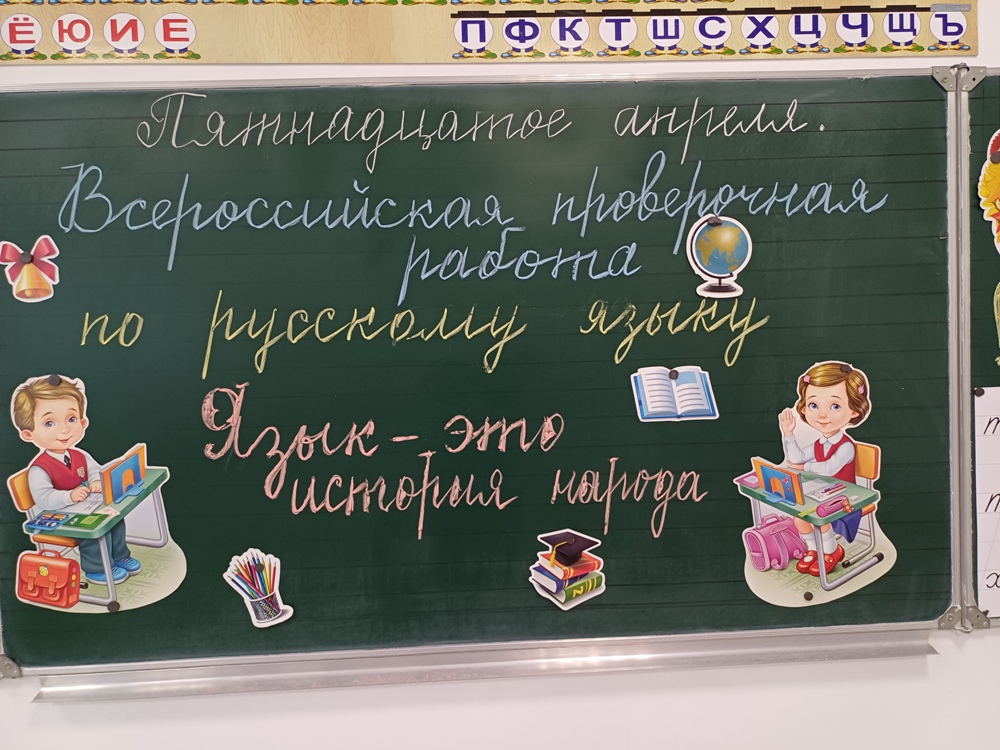 Ё Ю И Е П Ф К Т Ш С Х Ц Ч Щ Ъ
Пятнадцатое апреля.
Всероссийская проверочная
работа
по русскому языку
Язык – это
история народа
т
п
х